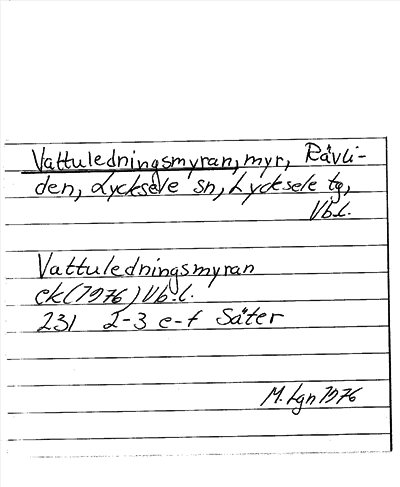 Vattuledningsmyran, myr, Rävli-
den, Lycksele sn, Lycksele tg,
Vb.l.
Vattuledningsmyran
ek (1976) Vb.l.
231 2-3 e-f Säter
M. Lgn 1976